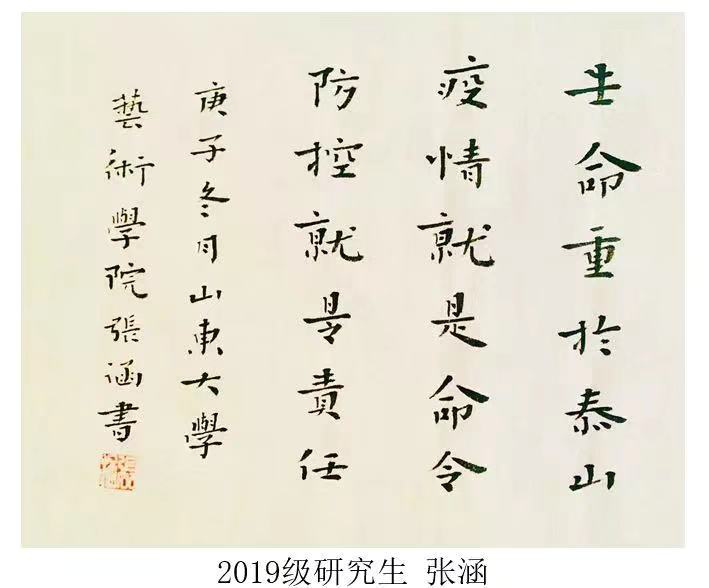 生命重於泰山
疫情就是命令
防控就是責任
庚子冬月山東大學
藝術學院張涵書
2019级研究生 张涵